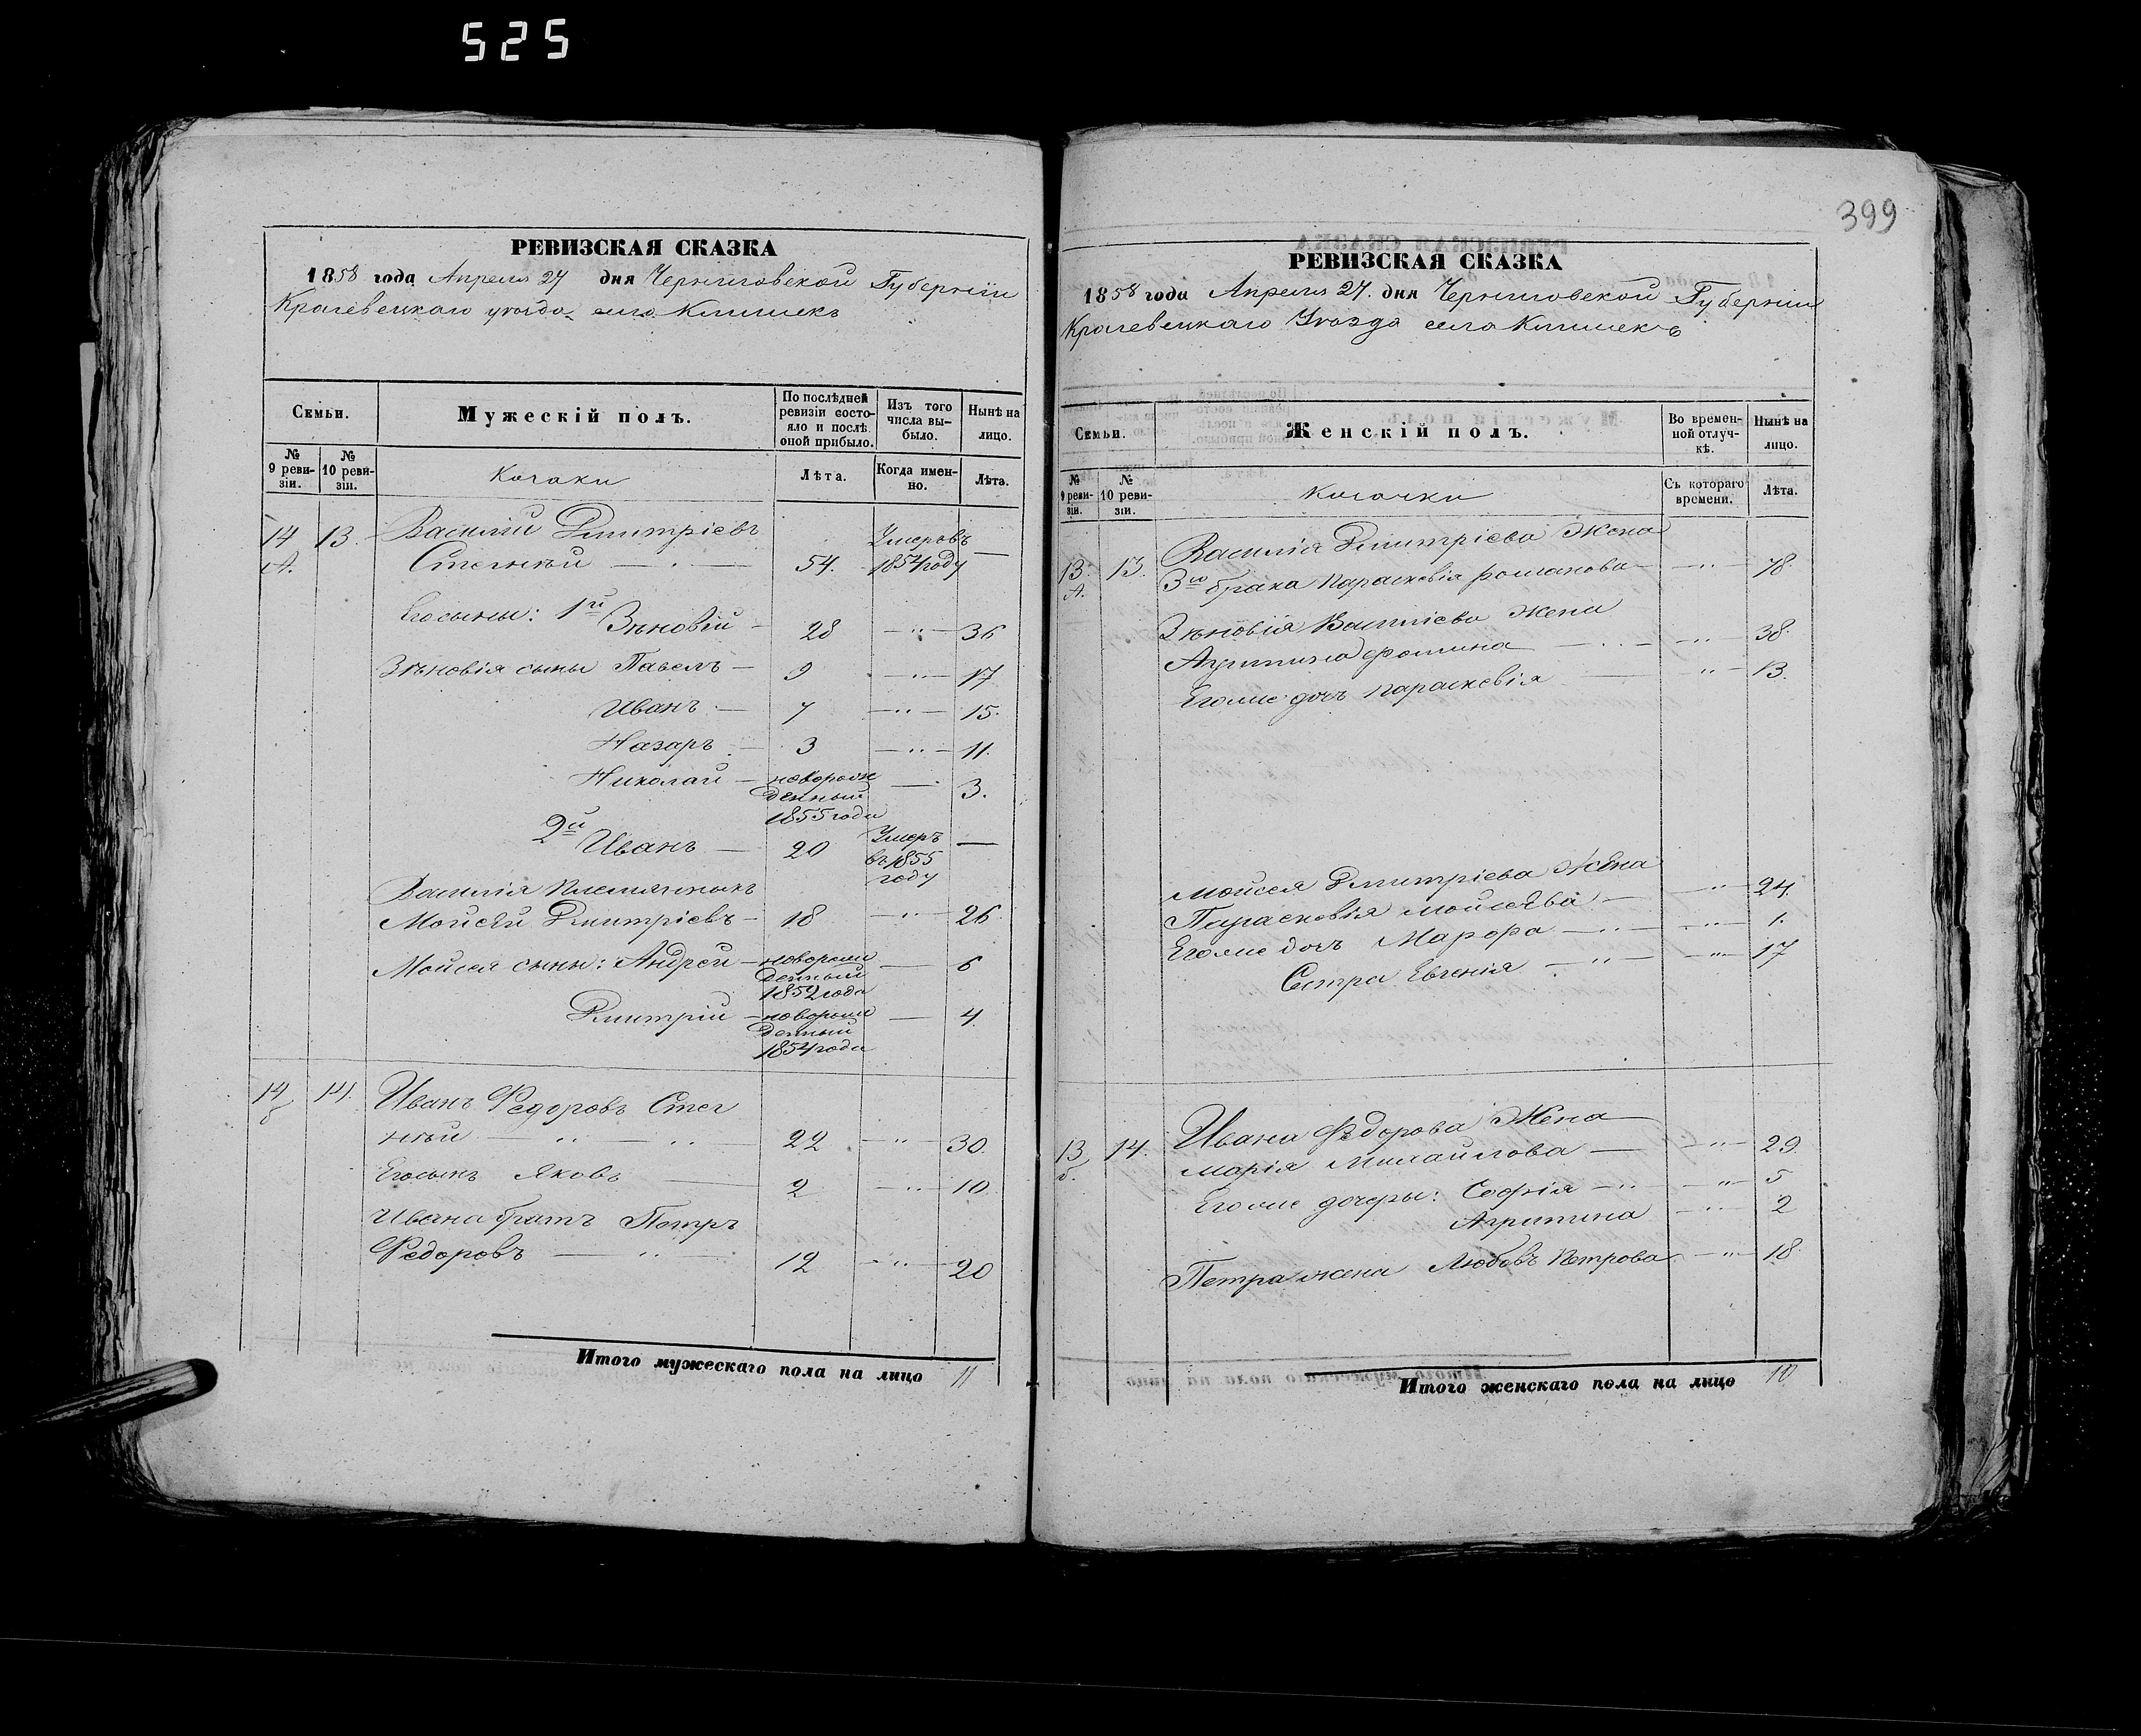 525
399
РЕВИЗСКАЯ СКАЗКА
1858 года Апреля 27 дня Черниговской Губернии
Кролевецкаго уѣзда села Клишекъ
Семьи.
Мужескій полъ.
По послѣдней ревизіи состояло и послѣ оной прибыло.
Изъ того числа выбыло.
Нынѣ на лицо.
№ 9 ревизіи.
№ 10 ревизіи.
Козаки
Лѣта.
Когда именно.
Лѣта.
14 А. 13. Василій Дмитріевъ
54. Умеръ въ 1854 году —
Его сыны: 1й Зѣновій — 28 — " — 36
Зѣновія сыны Павелъ — 9 — " — 17
Иванъ — 7 — " — 15.
Назаръ — 3 — " — 11.
Николай — новорожденный 1855 года — 3.
2й Иванъ — 20 Умеръ въ 1855 году —
Василія племянникъ
Мойсей Дмитріевъ — 18 — " — 26.
Мойсея сыны: Андрей — новорожденный 1852 года — 6
Дмитрій — новорожденный 1854 года — 4.
14 б 14. Иванъ Федоровъ Стег
ній — " — " 22 — " — 30.
Его сынъ Яковъ — 2 — " — 10
Ивана братъ Петръ
Федоровъ — " — 12 — " — 20
Итого мужескаго пола на лицо 11
РЕВИЗСКАЯ СКАЗКА
1858 года Апреля 27. дня Черниговской Губерніи
Кролевецкаго Уѣзда села Клишекъ
Семьи.
Женскій полъ.
Во временной отлучкѣ.
Нынѣ на лицо.
№ 9 ревизіи.
№ 10 ревизіи.
Козачки
Съ котораго времени.
Лѣта.
Василія Дмитріева Жена
13. А. 13. 3го брака Параскевія Романова — " — 78.
Зѣновія Василіева Жена
Агрипина Фомина — " — 38.
Его же дочь Параскевія — " — 13.
Мойсея Дмитріева Жена
Параскевія Мойсеева — " — 24.
Его же дочь Марфа — " — 1.
Сестра Евгенія — " — 17
Ивана Федорова Жена
13 б. 14. Марія Михайлова — " — 29.
Его же дочеры: Софія — " — 5
Агрипина — " — 2
Петра жена Любовъ Петрова — " — 18.
Итого женскаго пола на лицо 10